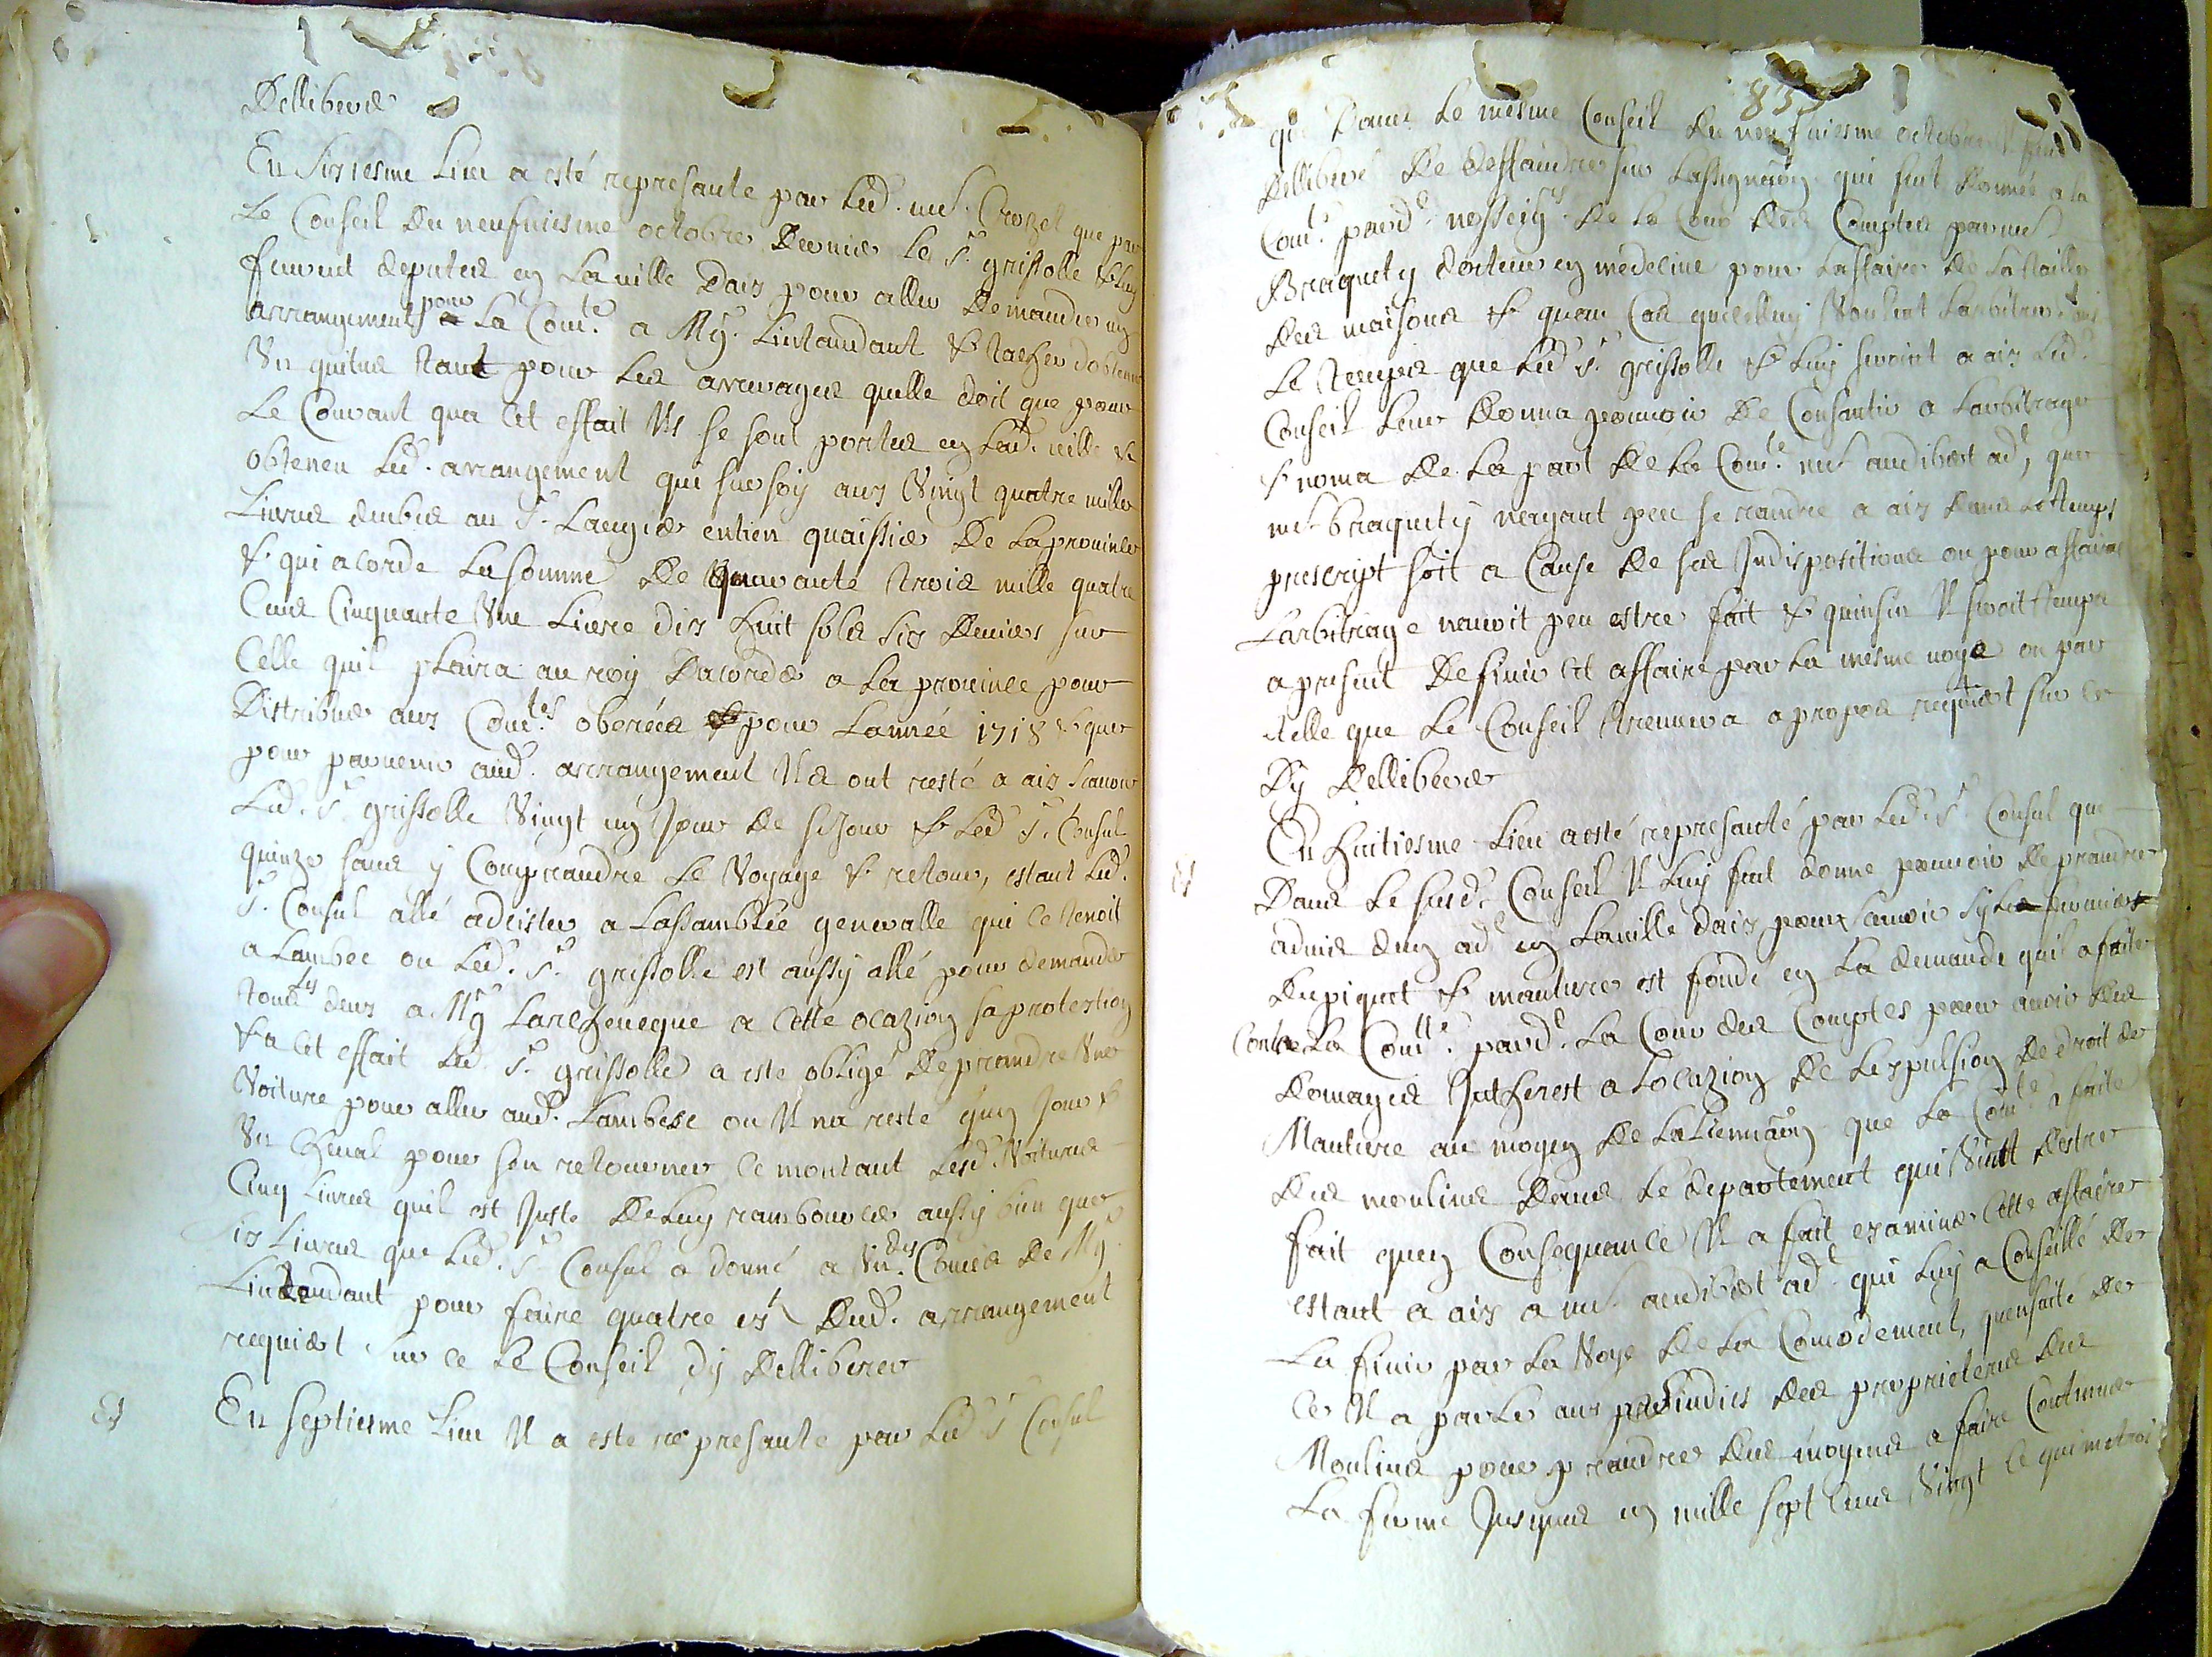 Delliberer
En sixiesme lieu a esté represanté par led. me. Crozet que par
Le Conseil du neufviesme octobre dernier le Sr. grissolle & luy
furent deputés en la ville daix pour aller demander un
arrangement pour la Comté. a Mgr. Lintandant & tacher dobtenir
Un quitus tant pour les arrerages quelle doit que pour
Le Courant qua cet effait Ils se sont portés en lad. ville &
obteneu led. arrangement qui sursoy aux Vingt quatre mille
Livres deubes au Sr. Laugier entien quaissier de la province
& qui acorde la somme de quarante trois mille quatre
Cens Cinquante Une Livre dix huit sols six deniers sur
Celle quil plaira au roy dacorder a la province pour
Distribuer aux Comtes. oberées pour lannée 1718 & que
pour parvenir aud. arrangement Ils ont resté a aix scavoir
Led. Sr. grissolle Vingt un Jour de sejour & led Sr. Consul
quinze sans y Comprandre le Voyage & retour, estant led.
Sr. Consul allé adcister a Lassamblée generalle qui ce tenoit
a Lambec ou led. Sr. grissolle est aussy allé pour demander
tous les deux a Mgr Larcheveque a Cette ocazion sa protection
& a cet effait led. Sr. grissolle a esté obligé de prandre Une
Voiture pour aller aud. Lambesc ou Il na resté qun Jour &
Un cheval pour sen retourner ce montant lesd. Voitures
Cinq Livres quil est Juste de luy rambourcer aussy bien que
six Livres que led. Sr. Consul a donné a Un des Comis de Mgr.
Lintendant pour faire quatre ext. dud. arrangement
requiert sur ce le Conseil dy Delliberer
En septiesme lieu Il a esté represanté par led. Sr Consul
qu dans le mesme Conseil du neufviesme octobre Il fut
Delliberé de deffandre sur lassignaon. qui fut donnée a la
Comté. pard. nosseigrs. de la Cour des Comptes par me.
Braquety docteur en médecine pour laffaire de la taille
des maisons & quan Cas quicelluy Voulut larbitrer
Le temps que led. Sr. grissolle & luy seroint a aix led.
Conseil leur donna pouvoir de Consantir a larbitrage
& noma de la part de la Comté. me. audibert adt, que
me. braquety nayant peu se randre a aix dans le temps
prescript soit a Cause de ses Indispositions ou pour affaires
Larbitrage navoit peu estre fait & quinsin Il seroit temps
a present de finir cet affaire par la mesme voye ou par
telle que le Conseil treuvera a propos requiert sur ce
Dy Delliberer
En huitiesme lieu a esté represanté par led. Sr. Consul que
Dans le susd. Conseil Il luy fut donné pouvoir de prandre
advis dun adt en la ville daix pour scavoir sy le fermier
Du piquet & mouture est fondé en la demande quil a faite
Contre la Comté. pard. la Cour des Comptes pour avoir des
Domages Intherest a locazion de lexpulsion de droit de
Mouture au moyen de lalienaon. que la Comté a faite
Des moulins dans le departement qui Vint destre
fait quen Consequance Il a fait examiner Cette affaire
estant a aix a me. audibert adt qui luy a Conseillé de
La finir par la Voye de la Comodement, quensuite de
ce Il a parlé aux sindics des proprieteres des
Moulins pour prandre des moyens a faire Continuer
La ferme Jusques en mille sept Cens Vingt ce qui metroit